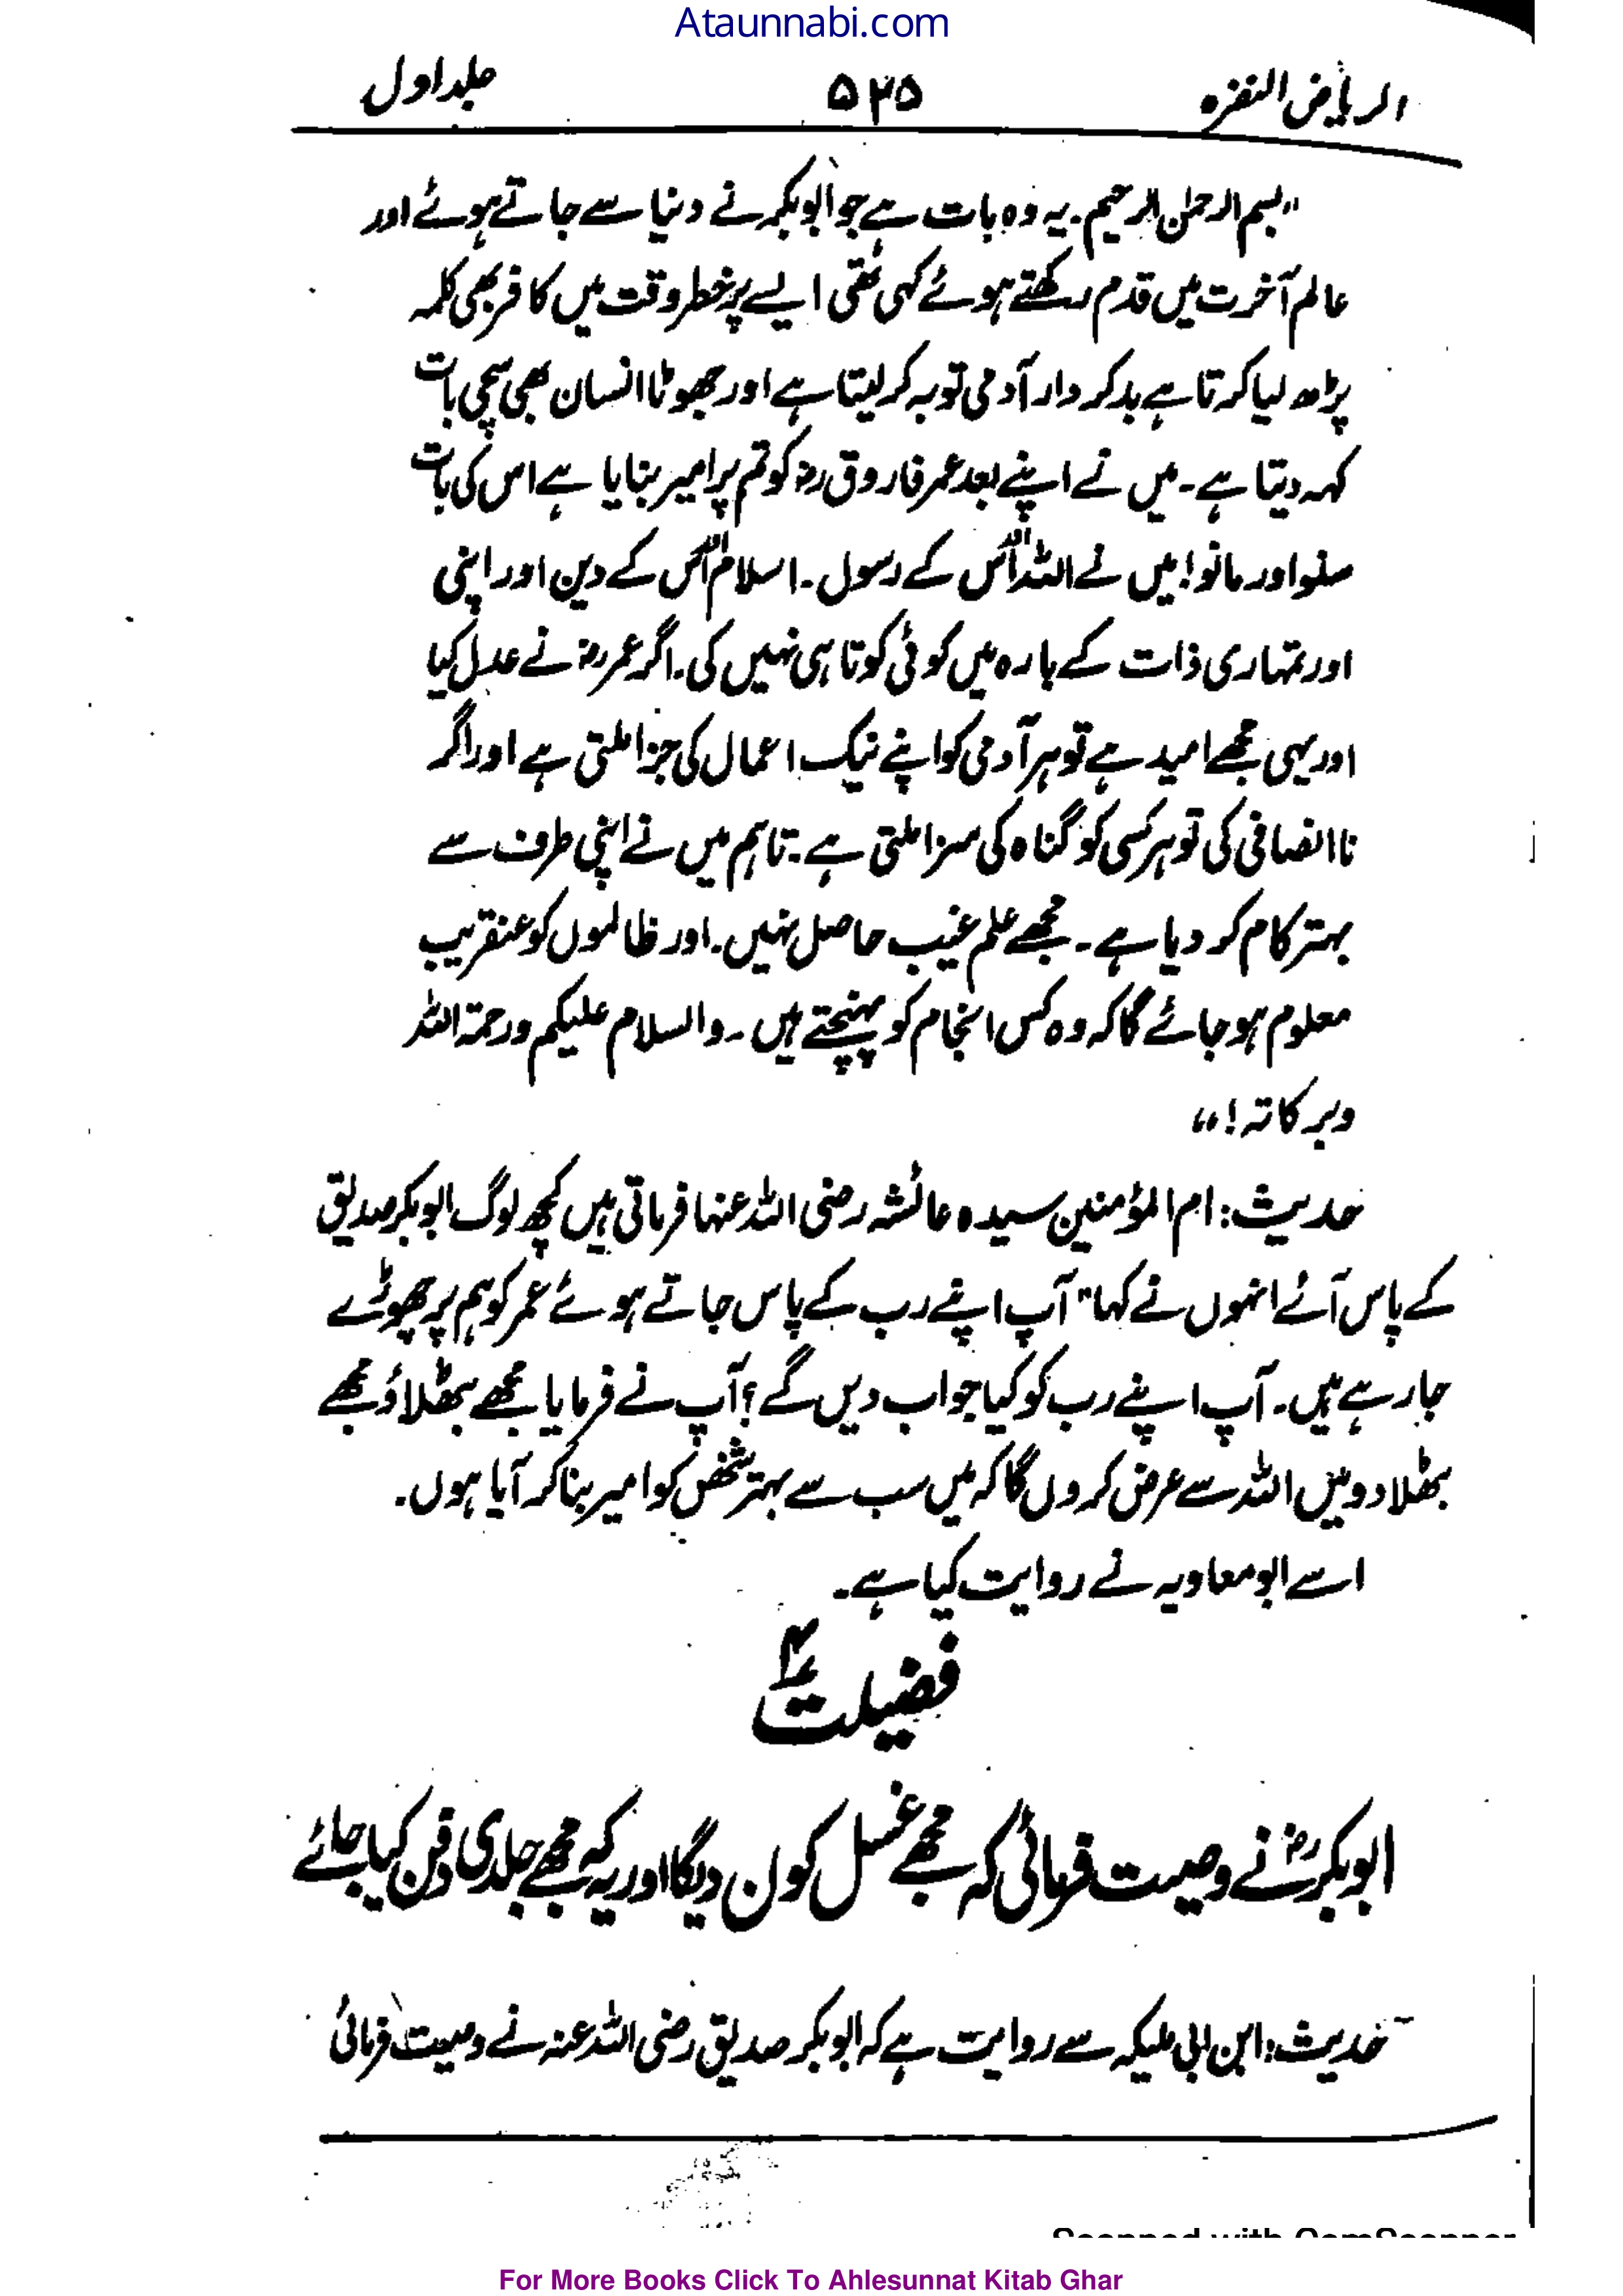 Ataunnabi.com
الریاض النضرہ ۵۲۵ جلد اول
"بسم الرحمٰن الرحیم۔ یہ وہ بات ہے جو ابوبکر نے دنیا سے جاتے ہوئے اور
عالم آخرت میں قدم رکھتے ہوئے کہی تھی ایسے پرخطر وقت میں کافر بھی کلمہ
پڑھ لیا کرتا ہے بدکردار آدمی توبہ کر لیتا ہے اور جھوٹا انسان بھی سچی بات
کہہ دیتا ہے۔ میں نے اپنے بعد عمر فاروق رض کو تم پر امیر بنایا ہے اس کی بات
سنو اور مانو! میں نے اللہ اُس کے رسول۔ اسلام اُس کے دین اور اپنی
اور تمہاری ذات کے بارہ میں کوئی کوتاہی نہیں کی۔ اگر عمر رض نے عدل کیا
اور یہی مجھے امید ہے تو ہر آدمی کو اپنے نیک اعمال کی جزا ملتی ہے اور اگر
نا انصافی کی تو ہر کسی کو گناہ کی سزا ملتی ہے۔ تاہم میں نے اپنی طرف سے
بہتر کام کر دیا ہے۔ مجھے علم غیب حاصل نہیں۔ اور ظالموں کو عنقریب
معلوم ہو جائے گا کہ وہ کس انجام کو پہنچتے ہیں۔ والسلام علیکم ورحمۃ اللہ
وبرکاتہ!"
حدیث: ام المؤمنین سیدہ عائشہ رضی اللہ عنہا فرماتی ہیں کچھ لوگ ابوبکر صدیق
کے پاس آئے انہوں نے کہا "آپ اپنے رب کے پاس جاتے ہوئے عمر کو ہم پر چھوڑے
جا رہے ہیں۔ آپ اپنے رب کو کیا جواب دیں گے؟ آپ نے فرمایا مجھے بٹھلاؤ مجھے
بٹھلا دو میں اللہ سے عرض کروں گا کہ میں سب سے بہتر شخص کو امیر بنا کر آیا ہوں۔
اسے ابو معاویہ نے روایت کیا ہے۔
فضیلت
ابوبکر رض نے وصیت فرمائی کہ مجھے غسل کون دیگا اور یہ کہ مجھے جلدی دفن کیا جائے
حدیث: ابن ابی ملیکہ سے روایت ہے کہ ابوبکر صدیق رضی اللہ عنہ نے وصیت فرمائی
For More Books Click To Ahlesunnat Kitab Ghar